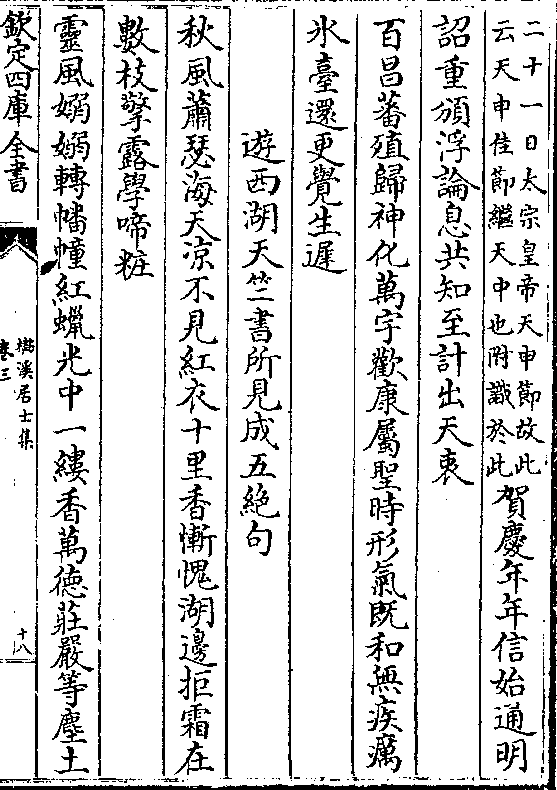 二十一日太宗皇帝天申節故此
云天申佳節繼天中也附識於此
賀慶年年信始通明
詔重頒浮論息共知至計出天衷
百昌蕃殖歸神化萬宇歡康屬聖時形氣既和無疾癘
氷臺還更覺生遲
遊西湖天竺書所見成五絶句
秋風蕭瑟海天凉不見紅衣十里香慚愧湖邊拒霜在
數枝擎露學啼粧
靈風嫋嫋轉幡幢紅蠟光中一縷香萬德莊嚴等塵土
欽定四庫全書
樵溪居士集
卷三
十八